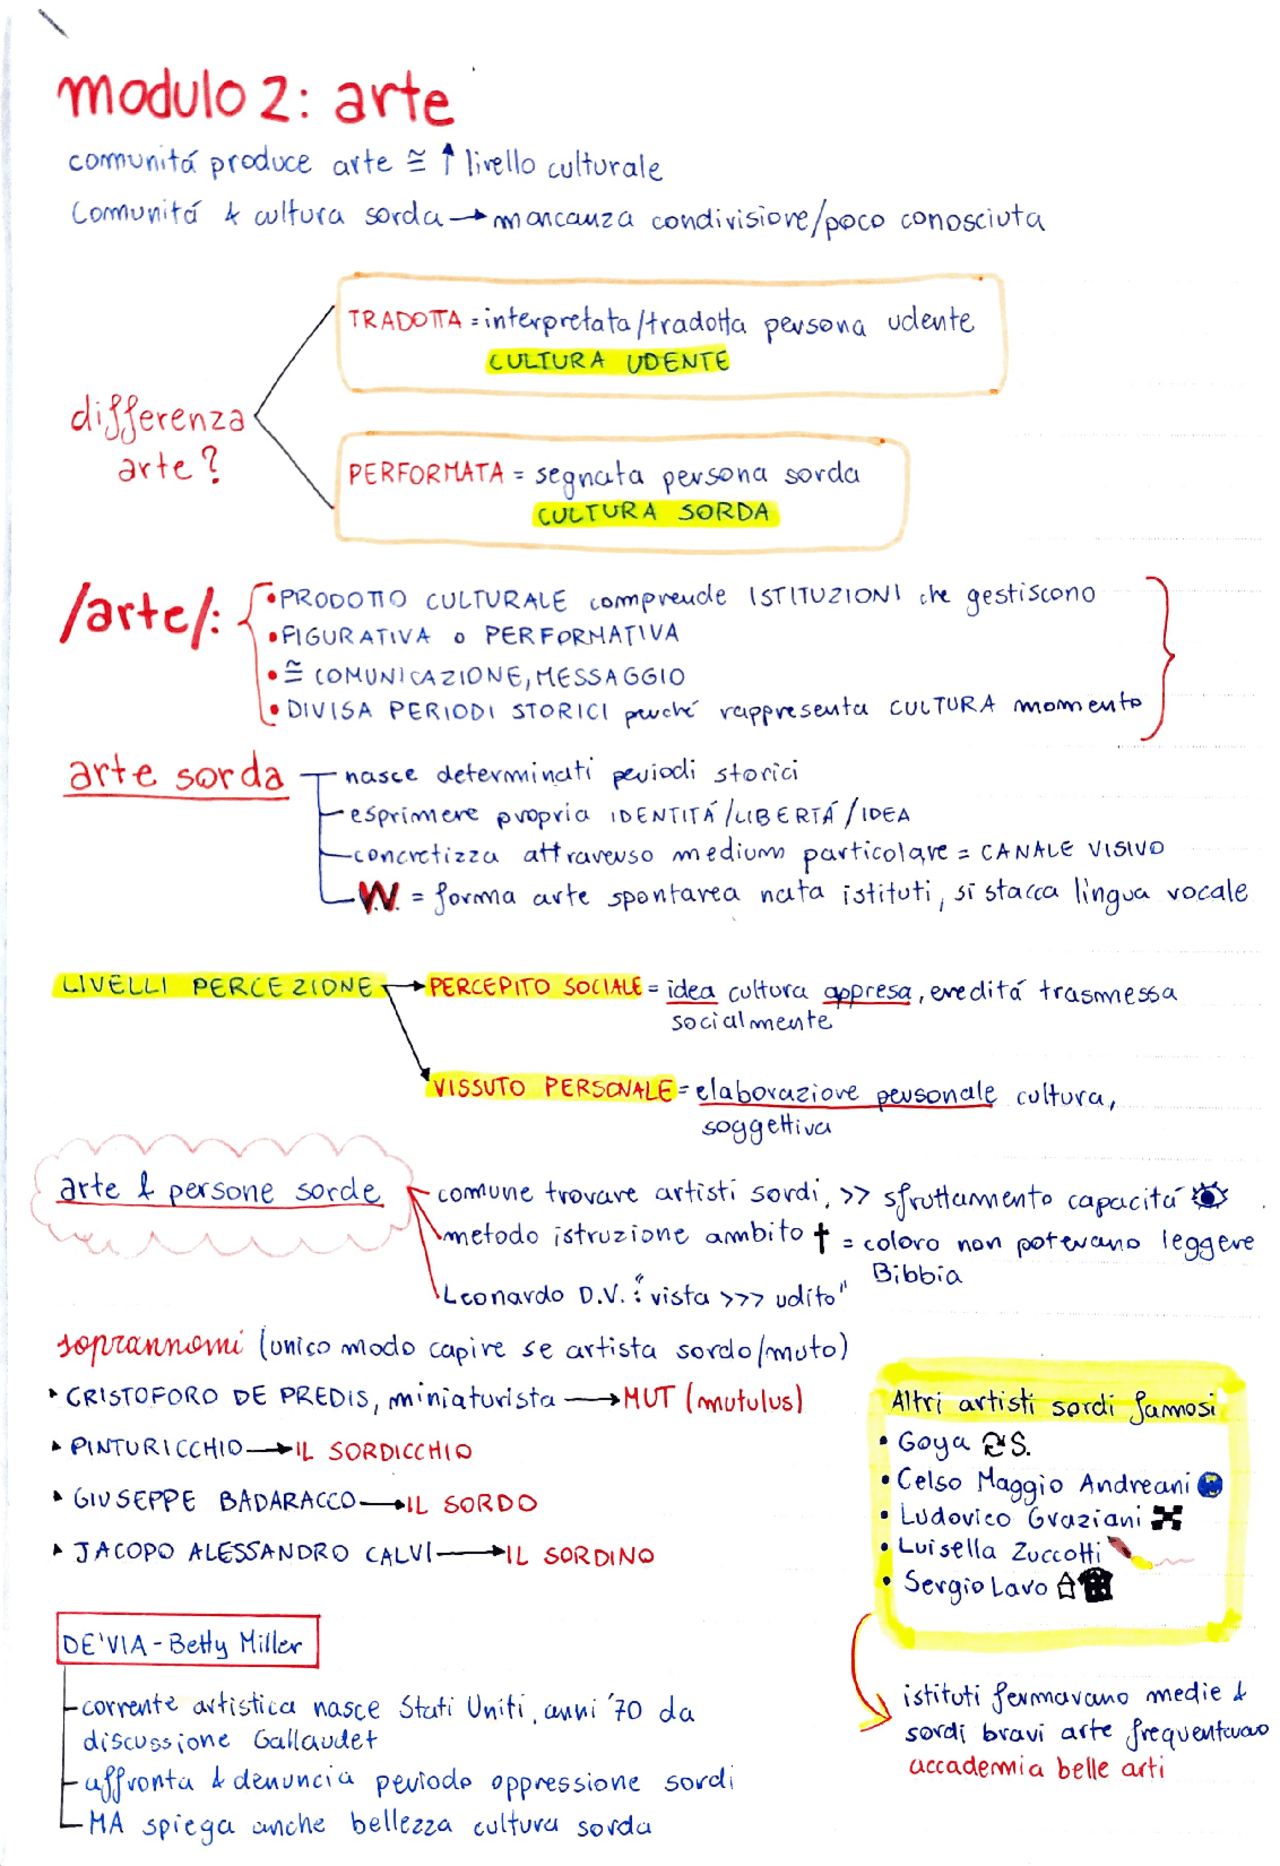 modulo 2: arte
comunitá produce arte ≅ ↑ livello culturale
Comunitá & cultura sorda → mancanza condivisione/poco conosciuta
differenza arte?
TRADOTTA = interpretata/tradotta persona udente
CULTURA UDENTE
PERFORMATA = segnata persona sorda
CULTURA SORDA
/arte/:
• PRODOTTO CULTURALE comprende ISTITUZIONI che gestiscono
• FIGURATIVA o PERFORMATIVA
• ≅ COMUNICAZIONE, MESSAGGIO
• DIVISA PERIODI STORICI perché rappresenta CULTURA momento
arte sorda
nasce determinati periodi storici
esprimere propria IDENTITÁ/LIBERTÁ/IDEA
concretizza attraverso medium particolare = CANALE VISIVO
W. = forma arte spontanea nata istituti, si stacca lingua vocale
LIVELLI PERCEZIONE → PERCEPITO SOCIALE = idea cultura appresa, ereditá trasmessa
socialmente
VISSUTO PERSONALE = elaborazione personale cultura,
soggettiva
arte & persone sorde
comune trovare artisti sordi, >> sfruttamento capacitá
metodo istruzione ambito † = coloro non potevano leggere
Bibbia
Leonardo D.V.: "vista >>> udito"
soprannomi (unico modo capire se artista sordo/muto)
CRISTOFORO DE PREDIS, miniaturista → MUT (mutulus)
PINTURICCHIO → IL SORDICCHIO
GIUSEPPE BADARACCO → IL SORDO
JACOPO ALESSANDRO CALVI → IL SORDINO
Altri artisti sordi famosi
• Goya S.
• Celso Maggio Andreani
• Ludovico Graziani
• Luisella Zuccotti
• Sergio Lavo
istituti fermavano medie &
sordi bravi arte frequentavano
accademia belle arti
DE'VIA - Betty Miller
corrente artistica nasce Stati Uniti, anni '70 da
discussione Gallaudet
affronta & denuncia periodo oppressione sordi
MA spiega anche bellezza cultura sorda